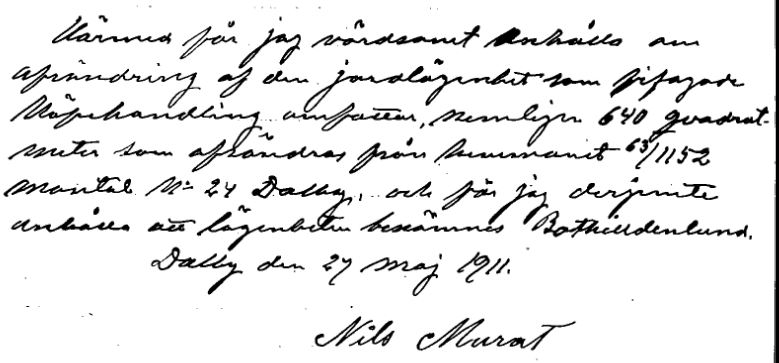 Härmed får jag vördsamt anhålla om
afsöndring af den jordlägenhet som bifogade
köpehandling omfattar, nemligen 640 qvadrat-
meter som afsöndras från hemmanet 63/1152
mantal № 24 Dalby, och får jag derjemte
anhålla att lägenheten benämnes Bothildenlund.
Dalby den 27 maj 1911.
Nils Murat